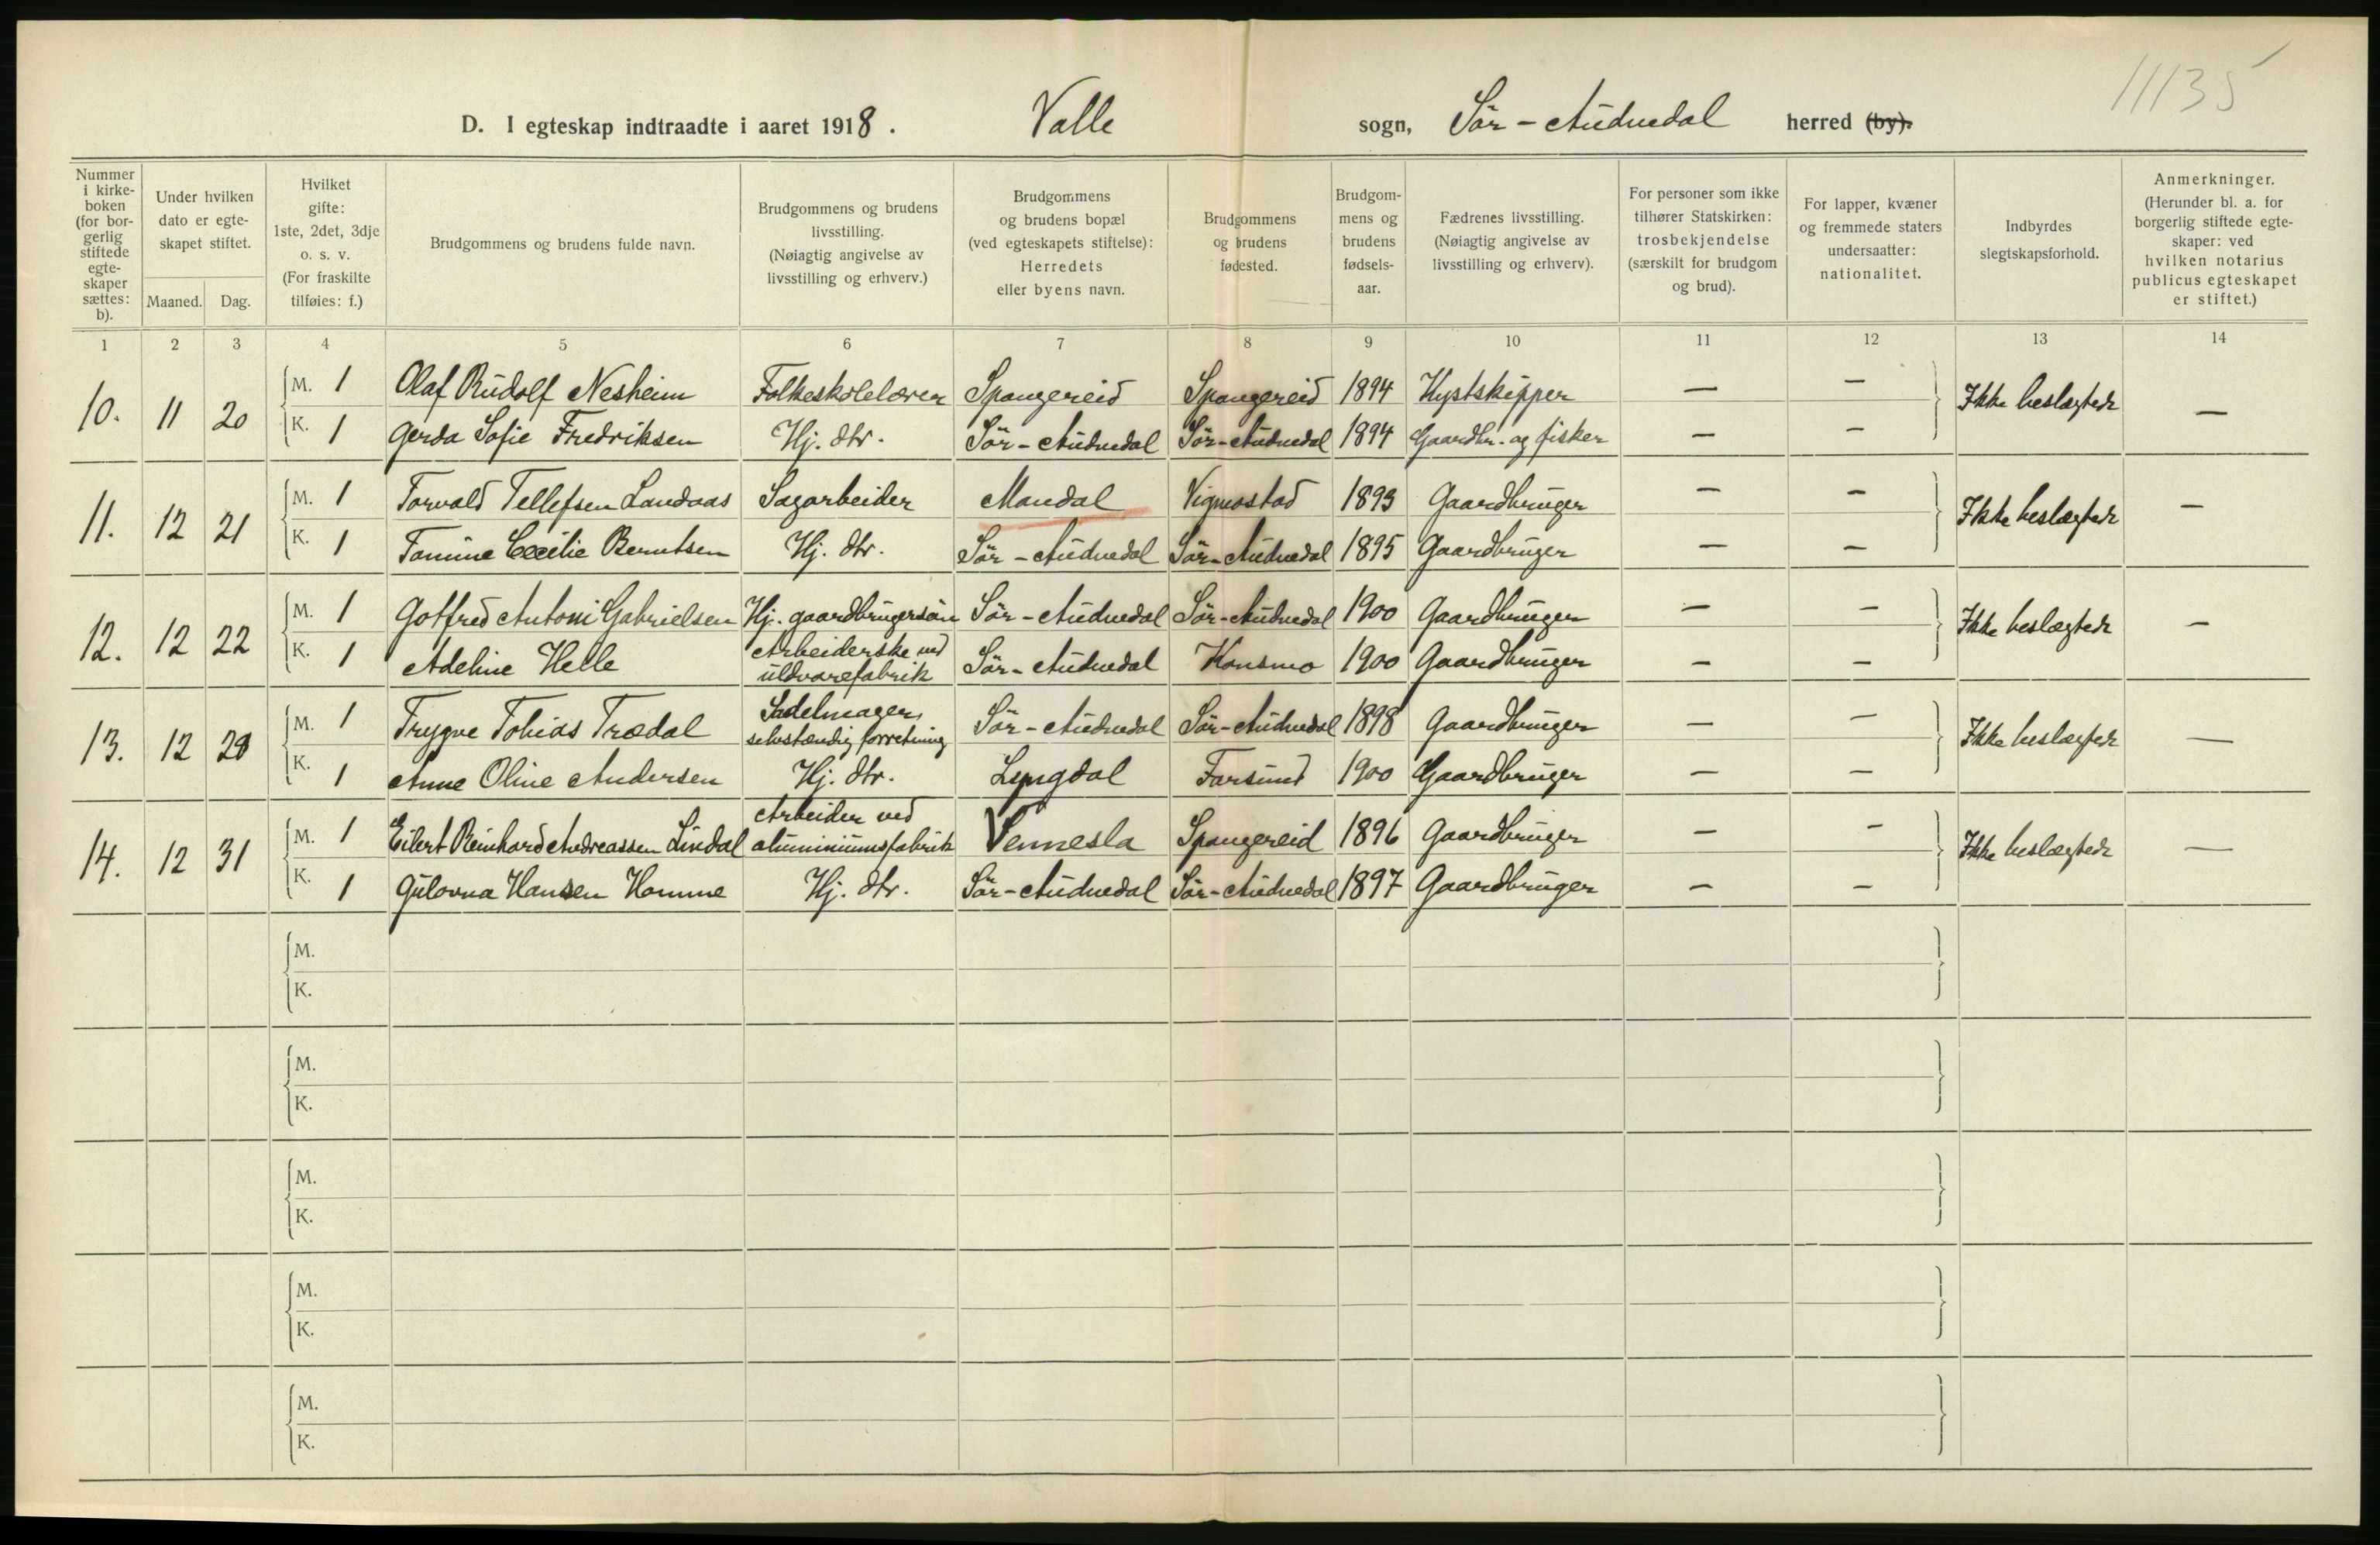 11135
D. I egteskap indtraadte i aaret 1918. Valle sogn, Sör-Audnedal herred (by).
Nummer i kirkeboken (for borgerlig stiftede egteskaper sættes: b).
Under hvilken dato er egteskapet stiftet.
Maaned. Dag.
Hvilket gifte: 1ste, 2det, 3dje o. s. v. (For fraskilte tilføies: f.)
Brudgommens og brudens fulde navn.
Brudgommens og brudens livsstilling. (Nøiagtig angivelse av livsstilling og erhverv.)
Brudgommens og brudens bopæl (ved egteskapets stiftelse): Herredets eller byens navn.
Brudgommens og brudens fødested.
Brudgommens og brudens fødselsaar.
Fædrenes livsstilling. (Nøiagtig angivelse av livsstilling og erhverv).
For personer som ikke tilhører Statskirken: trosbekjendelse (særskilt for brudgom og brud).
For lapper, kvæner og fremmede staters undersaatter: nationalitet.
Indbyrdes slegtskapsforhold.
Anmerkninger. (Herunder bl. a. for borgerlig stiftede egteskaper: ved hvilken notarius publicus egteskapet er stiftet.)
1 2 3 4 5 6 7 8 9 10 11 12 13 14
10. 11 20 M. 1 Olaf Rudolf Nesheim Folkeskolelærer Spangereid Spangereid 1894 Kystskipper — — Ikke beslægtede —
K. 1 Gerda Sofie Fredriksen Hj. dtr. Sör-Audnedal Sör-Audnedal 1894 Gaardbr. og fisker — —
11. 12 21 M. 1 Torvald Tellefsen Landaas Sagarbeider Mandal Vigmostad 1893 Gaardbruger — — Ikke beslægtede —
K. 1 Tomine Cecilie Berntsen Hj. dtr. Sör-Audnedal Sör-Audnedal 1895 Gaardbruger — —
12. 12 22 M. 1 Gotfred Antoni Gabrielsen Hj. gaardbrugersön Sör-Audnedal Sör-Audnedal 1900 Gaardbruger — — Ikke beslægtede —
K. 1 Adeline Helle Arbeiderske ved uldvarefabrik Sör-Audnedal Konsmo 1900 Gaardbruger — —
13. 12 28 M. 1 Trygve Tobias Trædal Sadelmager, selvstændig forretning Sör-Audnedal Sör-Audnedal 1898 Gaardbruger — — Ikke beslægtede —
K. 1 Anne Oline Andersen Hj. dtr. Lyngdal Farsund 1900 Gaardbruger — —
14. 12 31 M. 1 Eilert Reinhard Andreassen Lindal Arbeider ved aluminiumsfabrik Vennesla Spangereid 1896 Gaardbruger — — Ikke beslægtede —
K. 1 Gulovna Hansen Homme Hj. dtr. Sör-Audnedal Sör-Audnedal 1897 Gaardbruger — —
M.
K.
M.
K.
M.
K.
M.
K.
M.
K.